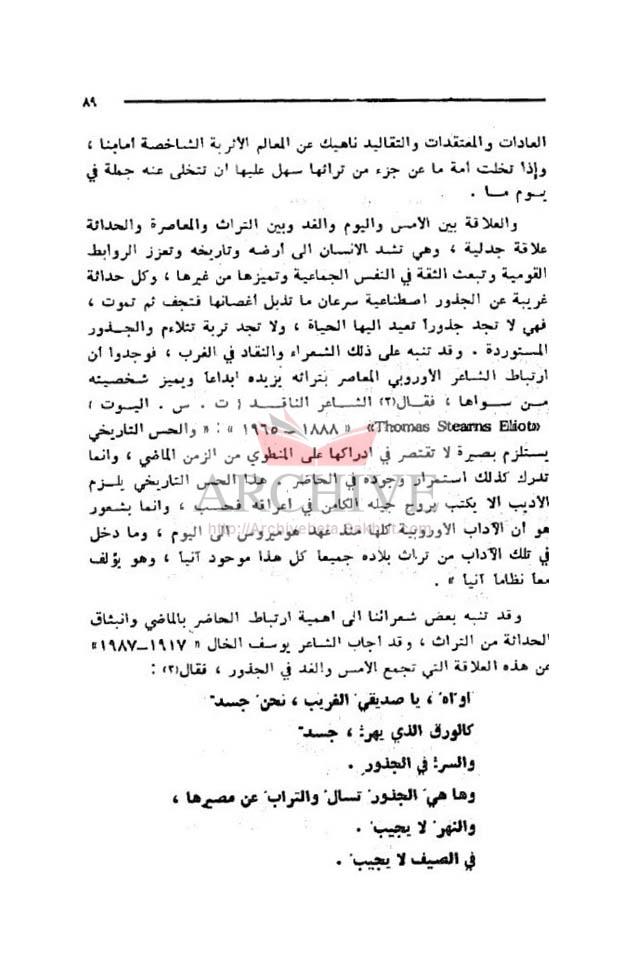 ٨٩
العادات والمعتقدات والتقاليد ناهيك عن المعالم الأثرية الشاخصة أمامنا ،
وإذا تخلت أمة ما عن جزء من تراثها سهل عليها ان تتخلى عنه جملة في
يوم ما .
والعلاقة بين الأمس واليوم والغد وبين التراث والمعاصرة والحداثة
علاقة جدلية ، وهي تشد الانسان الى أرضه وتاريخه وتعزز الروابط
القومية وتبعث الثقة في النفس الجماعية وتميزها من غيرها ، وكل حداثة
غريبة عن الجذور اصطناعية سرعان ما تذبل أغصانها فتجف ثم تموت ،
فهي لا تجد جذوراً تعيد اليها الحياة ، ولا تجد تربة تتلاءم والجــذور
المستوردة . وقد تنبه على ذلك الشعراء والنقاد في الغرب ، فوجدوا أن
ارتباط الشاعر الأوروبي المعاصر بتراثه يزيده ابداعاً ويميز شخصيته
مـن سـواها ، فقـال(٢) الشـاعر الناقـد ( ت . س . اليوت )
«Thomas Stearns Eliot» « ١٨٨٨ – ١٩٦٥ » : « والحس التاريخي
يستلزم بصيرة لا تقتصر في ادراكها على المنطوي من الزمن الماضي ، وانما
تدرك كذلك استمرار وجوده في الحاضر . هذا الحس التاريخي يلــزم
الأديب ألا يكتب بروح جيله الكامن في أعراقه فحسب ، وانما بشعور
هو أن الآداب الأوروبية كلها منذ عهد هوميروس الى اليوم ، وما دخل
في تلك الآداب من تراث بلاده جميعاً كل هذا موجود آنياً ، وهو يؤلف
معاً نظاماً آنياً » .
وقد تنبه بعض شعرائنا الى اهمية ارتباط الحاضر بالماضي وانبثاق
الحداثة من التراث ، وقد أجاب الشاعر يوسف الخال « ١٩١٧–١٩٨٧»
عن هذه العلاقة التي تجمع الأمس والغد في الجذور ، فقال(٣) :
اوّاهُ ، يا صديقي الغريب ، نحنُ جسدٌ
كالورق الذي يهرّ ، جسدٌ
والسرّ في الجذور .
وها هيَ الجذورُ تسألُ والترابُ عن مصيرها ،
والنهرُ لا يجيبُ .
في الصيف لا يجيبُ .
ARCHIVE
http://Archivebeta.Sakhrit.com